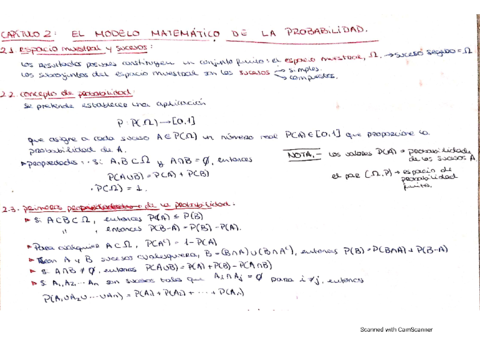 CAPÍTULO 2: EL MODELO MATEMÁTICO DE LA PROBABILIDAD.
2.1. espacio muestral y sucesos:
Los resultados posibles constituyen un conjunto finito: el espacio muestral, Ω. → suceso seguro = Ω
Los subconjuntos del espacio muestral son los sucesos → simples
→ compuestos.
2.2. concepto de probabilidad
Se pretende establecer una aplicación
P: P(Ω) → [0,1]
que asigne a cada suceso A∈P(Ω) un número real P(A)∈[0,1] que proporcione la
probabilidad de A.
▸ propiedades: · Si A,B⊂Ω y A∩B = Ø, entonces
P(A∪B) = P(A) + P(B)
· P(Ω) = 1.
NOTA.- Los valores P(A) → probabilidades
de los sucesos A.
el par (Ω,P) → espacio de
probabilidad
finito.
2.3. primeras propiedades de la probabilidad.
▸ Si A⊂B⊂Ω, entonces P(A) ≤ P(B)
" ", entonces P(B-A) = P(B) - P(A).
▸ Para cualquier A⊂Ω, P(Aᶜ) = 1 - P(A)
▸ Sean A y B sucesos cualesquiera, B = (B∩A)∪(B∩Aᶜ), entonces P(B) = P(B∩A) + P(B-A)
▸ Si A∩B ≠ Ø, entonces P(A∪B) = P(A) + P(B) - P(A∩B)
▸ Si A₁, A₂ ... Aₙ son sucesos tales que Aᵢ∩Aⱼ = Ø para i≠j, entonces
P(A₁∪A₂∪...∪Aₙ) = P(A₁) + P(A₂) + ... + P(Aₙ)
Scanned with CamScanner